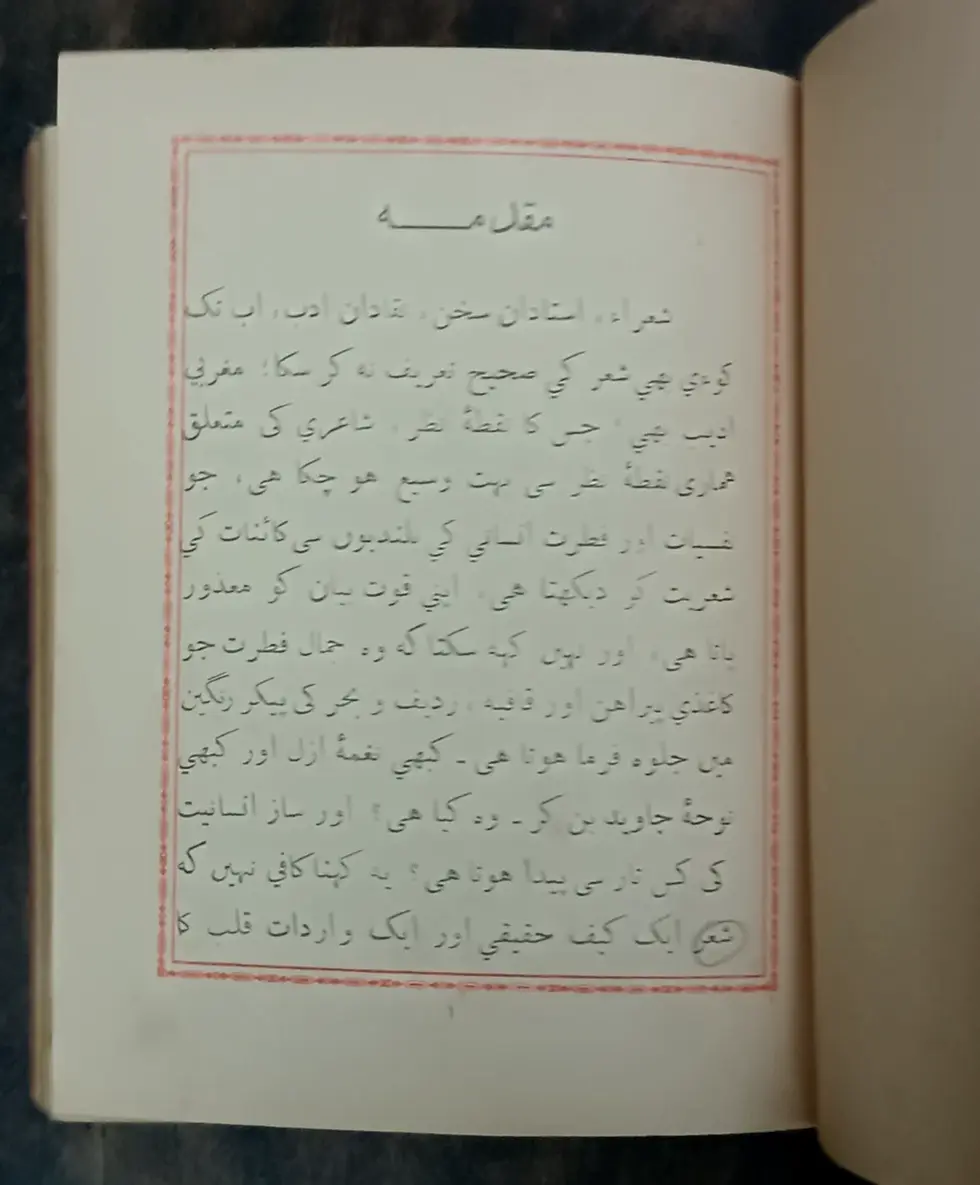 مقدمه
شعراء، استادان سخن، نقادان ادب، اب تک
کوئي بهي شعر کي صحیح تعریف نه کر سکا؛ مغربي
ادیب بهي، جس کا نقطۂ نظر، شاعري کی متعلق
هماری نقطۂ نظر سی بہت وسیع هو چکا هی، جو
نفسیات اور فطرت انساني کي بلندیوں سی کائنات کي
شعریت کو دیکهتا هی، اپني قوت بیان کو معذور
پاتا هی، اور نہیں کہه سکتا که وه جمال فطرت جو
کاغذي پیراهن اور قافیه، ردیف و بحر کی پیکر رنگین
میں جلوه فرما هوتا هی ـ کبهي نغمۂ ازل اور کبهي
نوحۂ جاوید بن کر ـ وه کیا هی؟ اور ساز انسانیت
کی کس تار سی پیدا هوتا هی؟ یه کہنا کافي نہیں که
شعر ایک کیف حقیقي اور ایک واردات قلب کا
۱